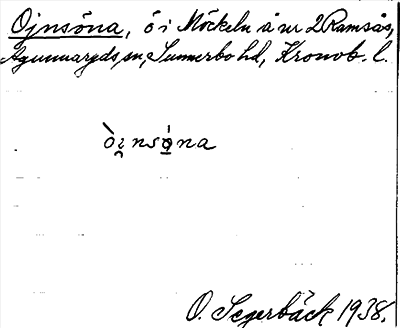 Ojnsöna, ö i Möckeln å nr 2 Ramsås,
Agunnaryds sn, Sunnerbo hd, Kronob. l.
òi̯nsǿna
O. Segerbäck 1938.